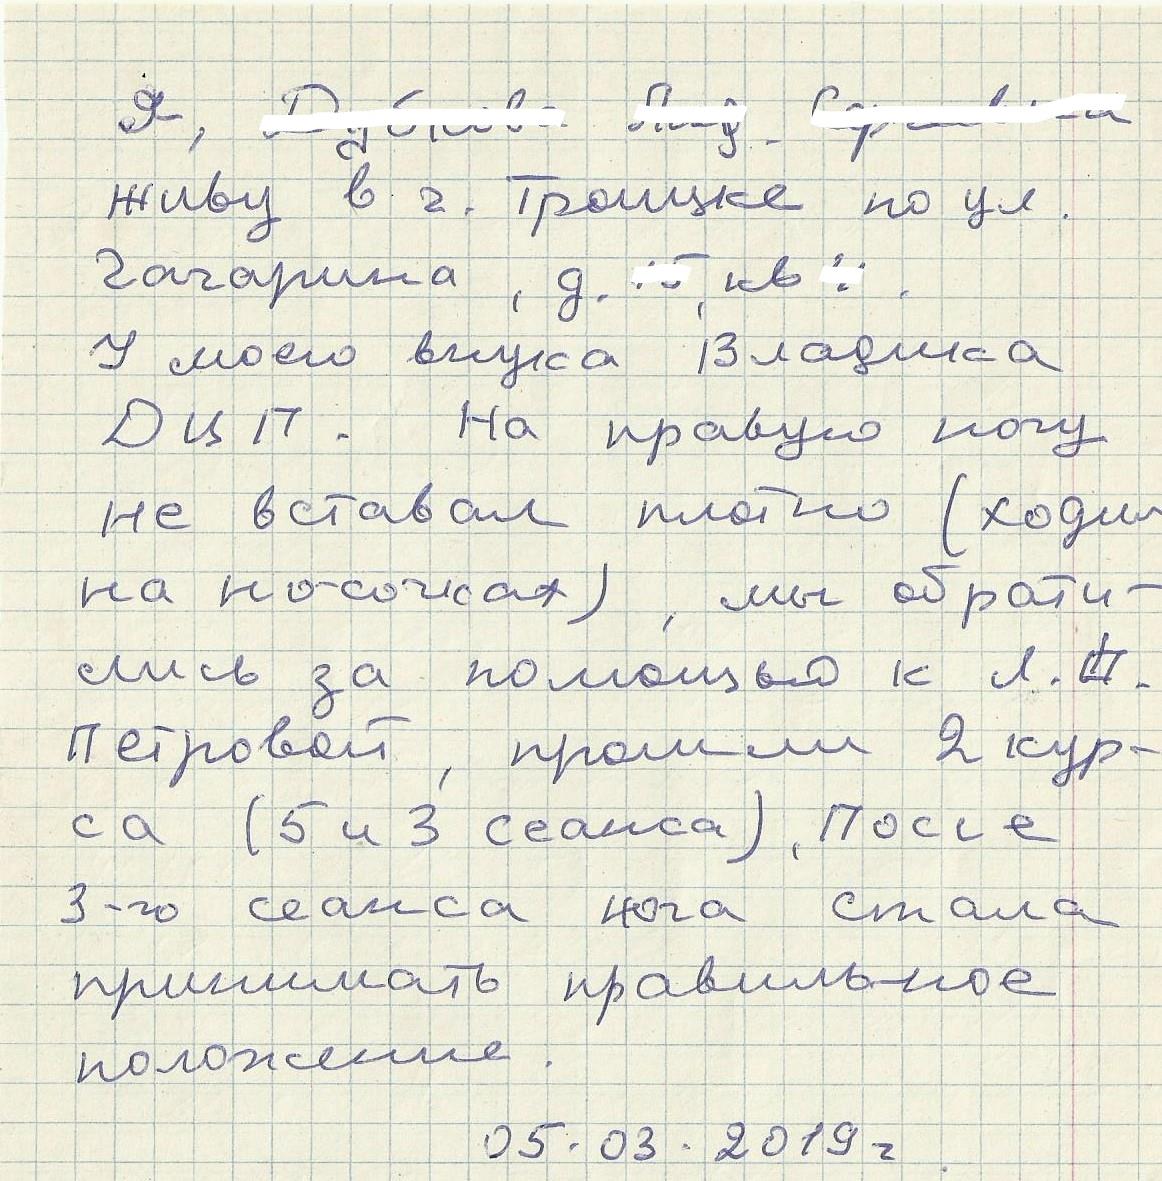 Я,
живу в г. Троицке по ул.
Гагарина, д. , кв .
У моего внука Владика
ДЦП. На правую ногу
не вставал плотно (ходил
на носочках), мы обрати-
лись за помощью к Л.П.
Петровой, прошли 2 кур-
са (5 и 3 сеанса), После
3-го сеанса нога стала
принимать правильное
положение.
05.03.2019 г.